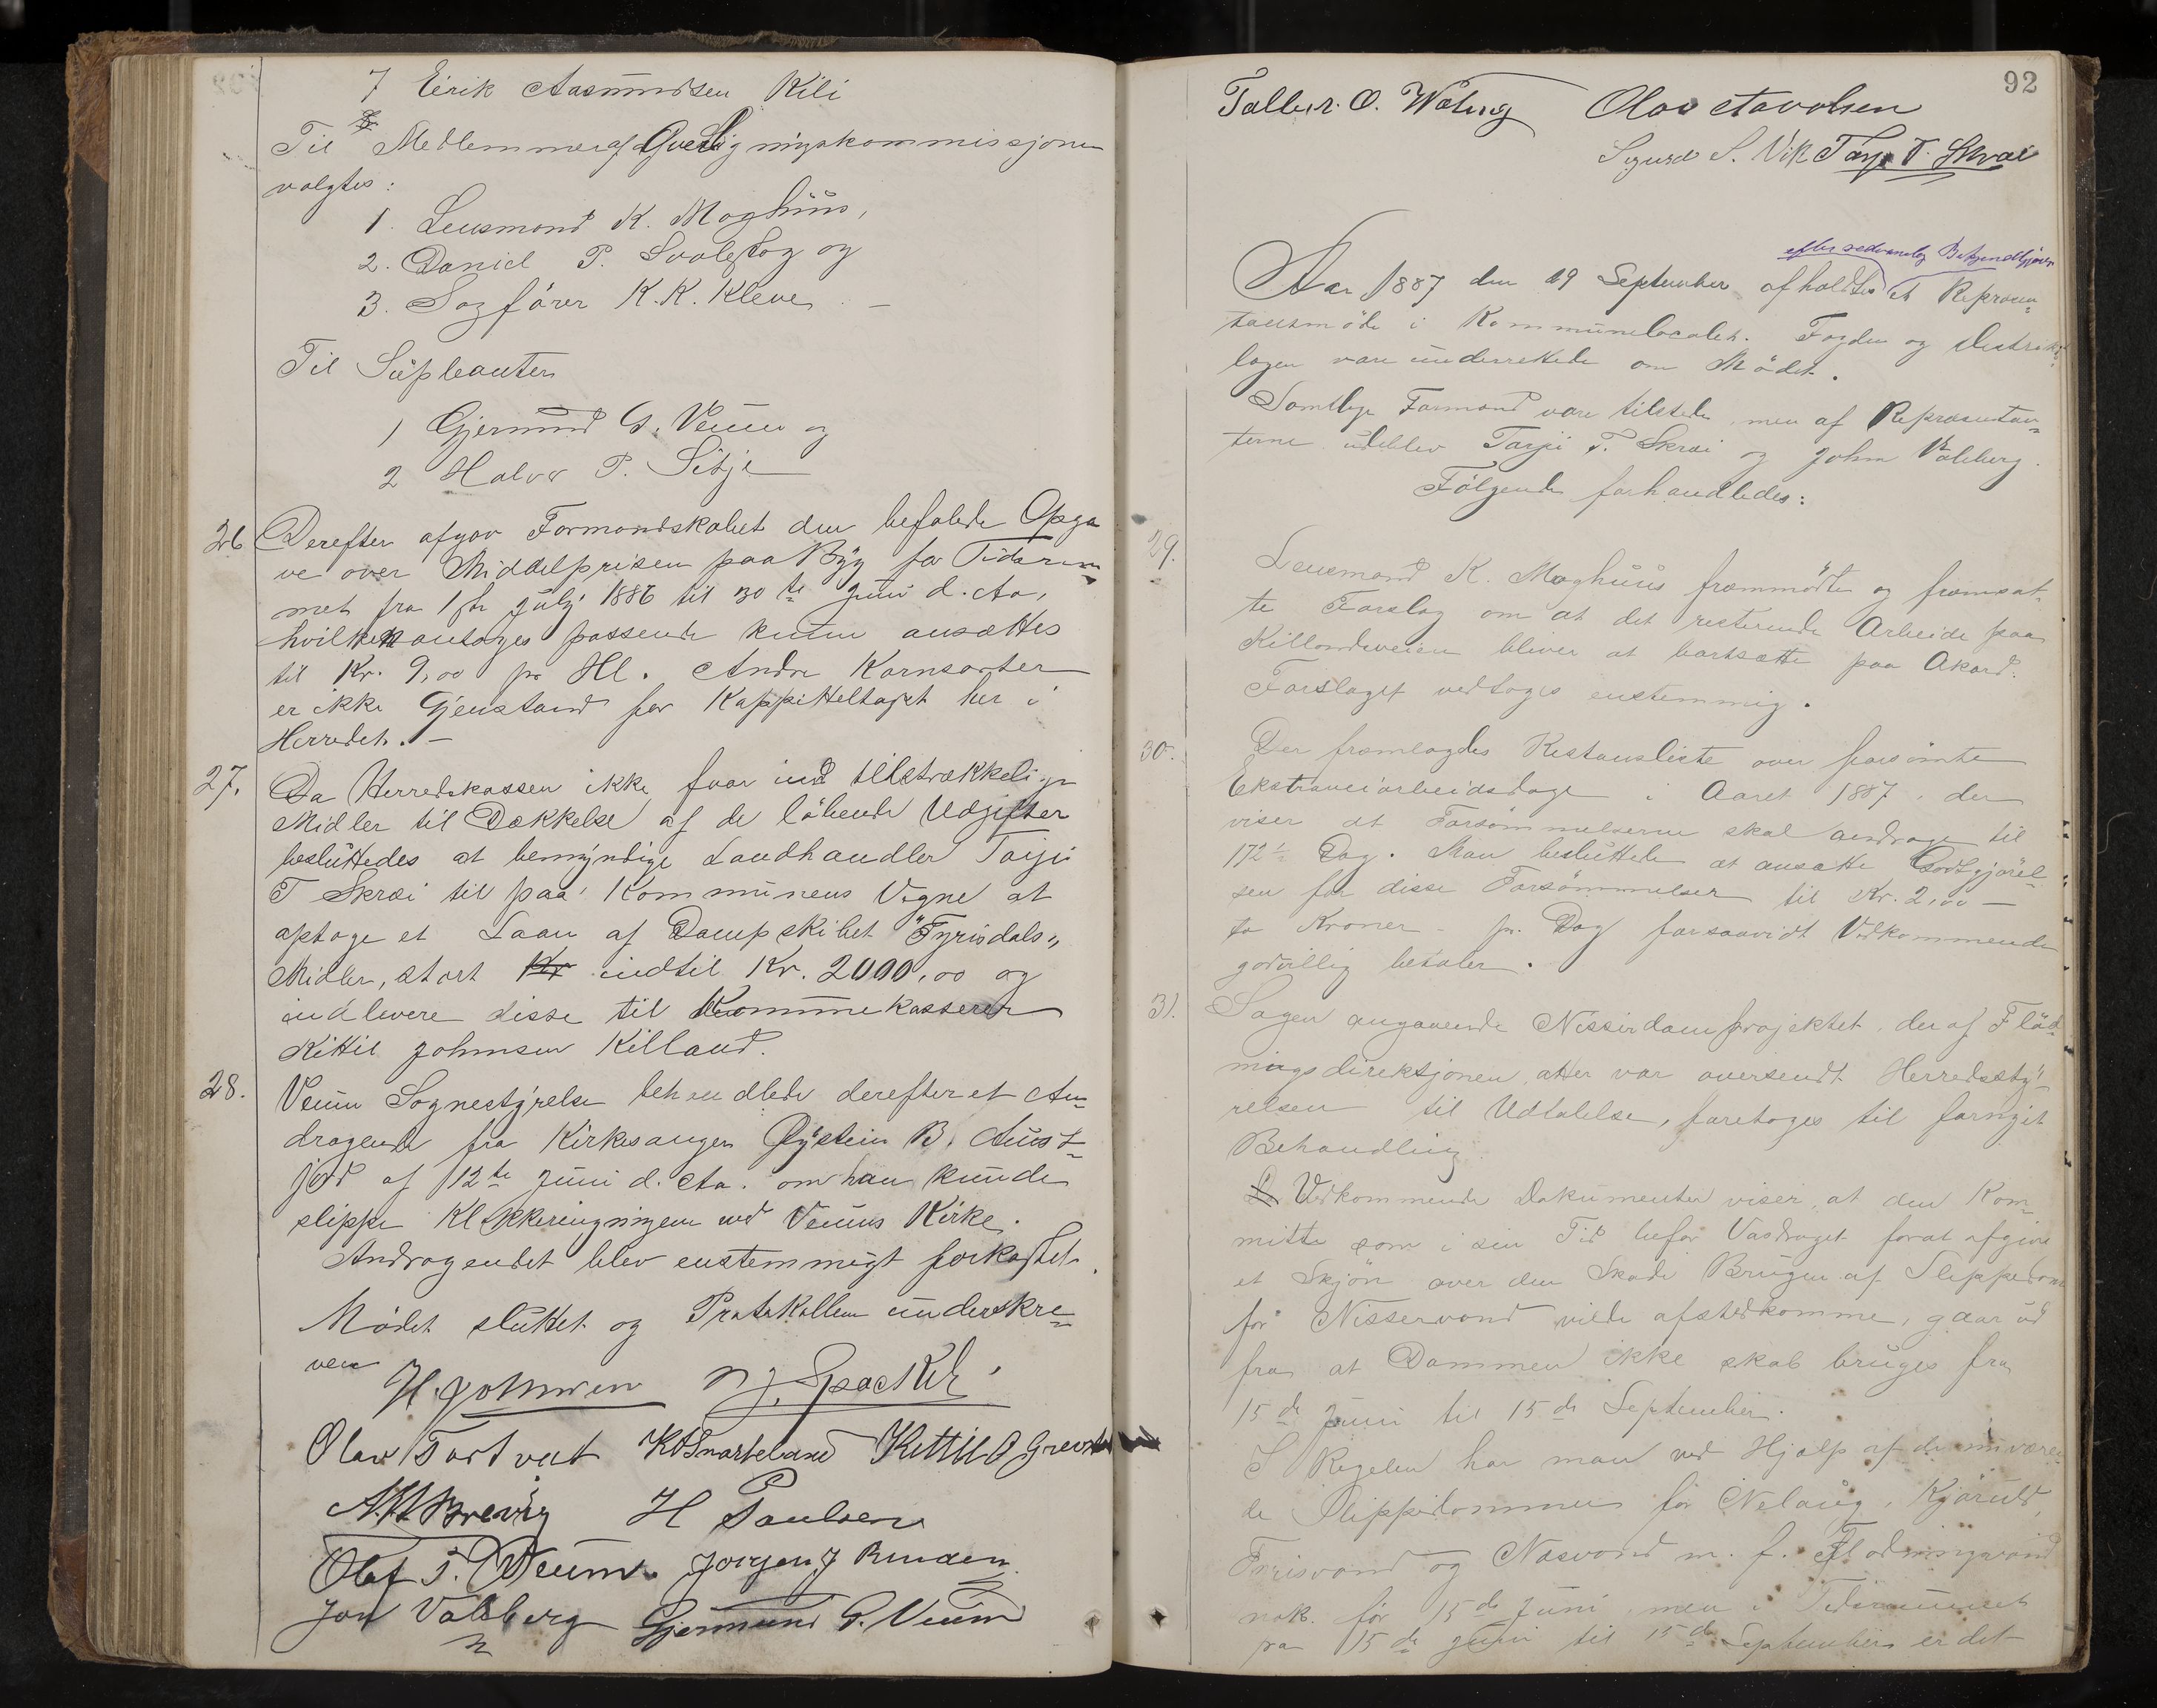 7 Eirik Aasmundsen Kili
Til Medlemmer af Overligningskommissjonen
valgtes:
1. Leusmond K. Moghuus,
2. Daniel P. Svalestog og
3. Sagfører K. K. Kleve. —
Til Supleanter
1 Gjermund G. Veum og
2 Halvor P. Sitje
26 Derefter afgav Formandskabet den befalede Opga
ve over Middelprisen paa Byg for Tidsrum
met fra 1ste July 1886 til 30te Juni d. Aa,
hvilken antages passende kunne ansættes
til Kr. 9,00 pr Hl. Andre Kornsorter
er ikke Gjenstand for Kappitteltaxt her i
Herredet. —
27. Da Herredskassen ikke faar ind tilstrækkelige
Midler til Dækkelse af de løbende Udgifter
besluttedes at bemyndige Landhandler Tarjei
T Skrei til paa Kommunens Vegne at
optage et Laan af Dampskibet "Fyrisdals„
Midler, stort Kr indtil Kr. 2000,00 og
indlevere disse til Kommunekasserer
Kittil Johnsen Killand.
28. Veum Sognestyrelse behandlede derefter et An
dragende fra Kirkesanger Øystein B. Aust
jord af 12te Juni d. Aa. om han kunde
slippe Klokkeringningen ved Veums Kirke.
Andragendet blev enstemmigt forkastet.
Mødet sluttet og Protokollen underskre
ven
H. Johnsen N J. Spockeli
Olav Tortveit K O Snarteland Kittil O Grevstad
A. H. Brevig H Paulsen
Olaf T. Veum. Jørgen J Bunden
Jon Valeberg Gjermund G. Veum
92
Tallev. O. Waleng Olav Aavolsen
Sigurd S. Vik Tarje T. Skrei
efter sedvanlig Bekjendtgjørelse
Aar 1887 den 19 September afholdtes et Repræsen
tantmøde i Kommunelocalet. Fogden og Distrikts
lægen vare underrettede om Mødet.
Samtlige Formænd vare tilstede, men af Repræsentan
terne udeblev Tarjei T. Skrei og John Valeberg.
Følgende forhandledes:
29. Leusmond K. Moghuus fremmødte og fremsat
te Forslag om at det resterende Arbeide paa
Killandsveien bliver at bortsætte paa Akord.
Forslaget vedtoges enstemmig.
30. Der fremlagdes Restanseliste over forsømte
Ekstraveiarbeidsdage i Aaret 1887, der
viser at Forsømmelserne skal andrage til
172 Dag. Man besluttede at ansætte Godtgjørel
sen for disse Forsømmelser til Kr. 2,00 —
to Kroner — pr. Dag forsaavidt Vedkommende
godvillig betaler.
31. Sagen angaaende Nisserdamprojektet, der af Fløt
ningsdirektjonen atter var oversendt Herredssty
relsen til Udtalelse, foretoges til fornyet
Behandling.
Vedkommende Dokumenter viser, at den Kom
mitte som i sin Tid befor Vasdraget forat afgive
et Skjøn over den Skade Brugen af Slippedam
for Nisservand vilde afstedkomme, gaar ud
fra at Dammen ikke skal bruges fra
15de Juni til 15de September.
I Regelen har man ved Hjælp af de nuværen
de Slippedammer for Nelaug, Kjørull,
Fyrisvand og Næsvand m. f. Flødningsvand
nok før 15de Juni, men i Tidsrummet
fra 15de Juni til 15de September er det